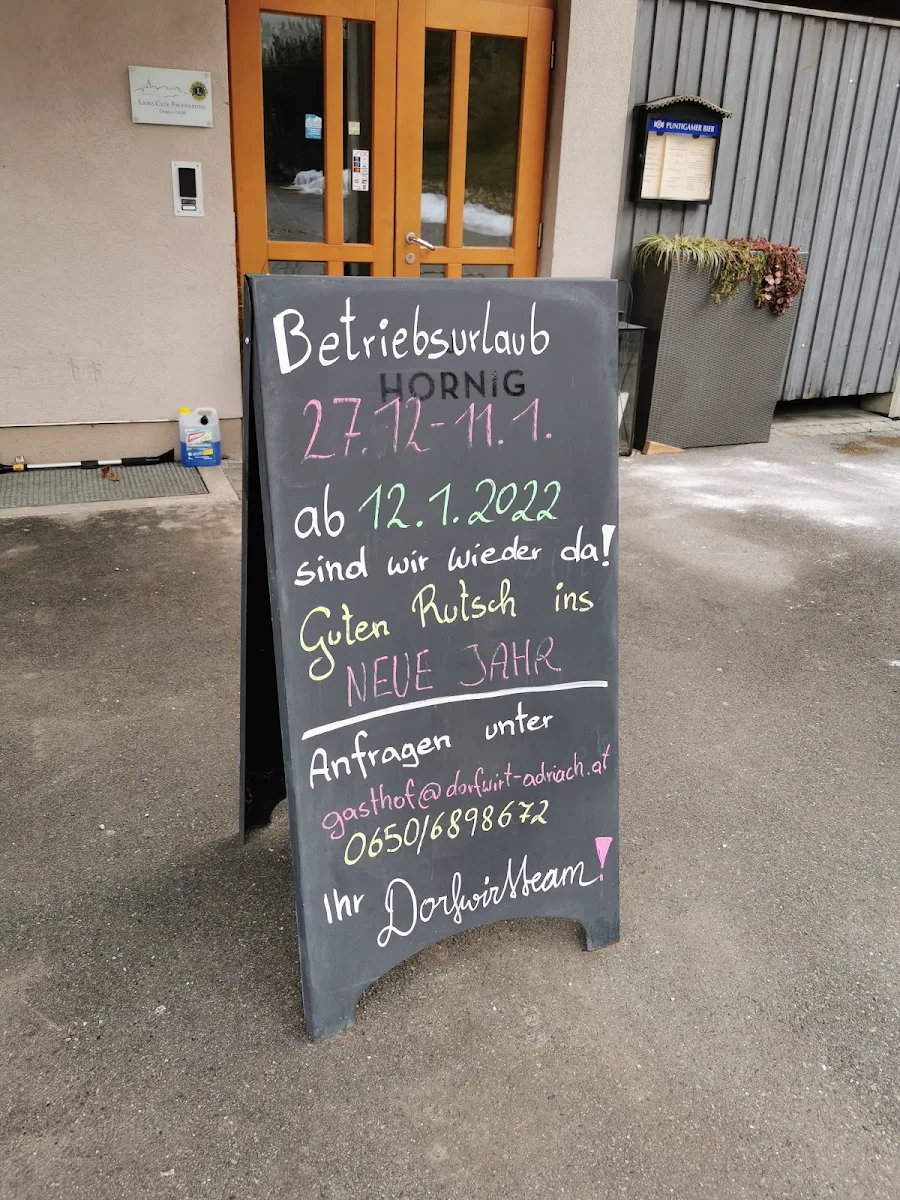 LIONS CLUB FROHNLEITEN
PUNTIGAMER BIER
Betriebsurlaub
HORNIG
27.12-11.1.
ab 12.1.2022
sind wir wieder da!
Guten Rutsch ins
NEUE JAHR
Anfragen unter
gasthof@dorfwirt-adriach.at
0650/6898672
Ihr Dorfwirtteam!